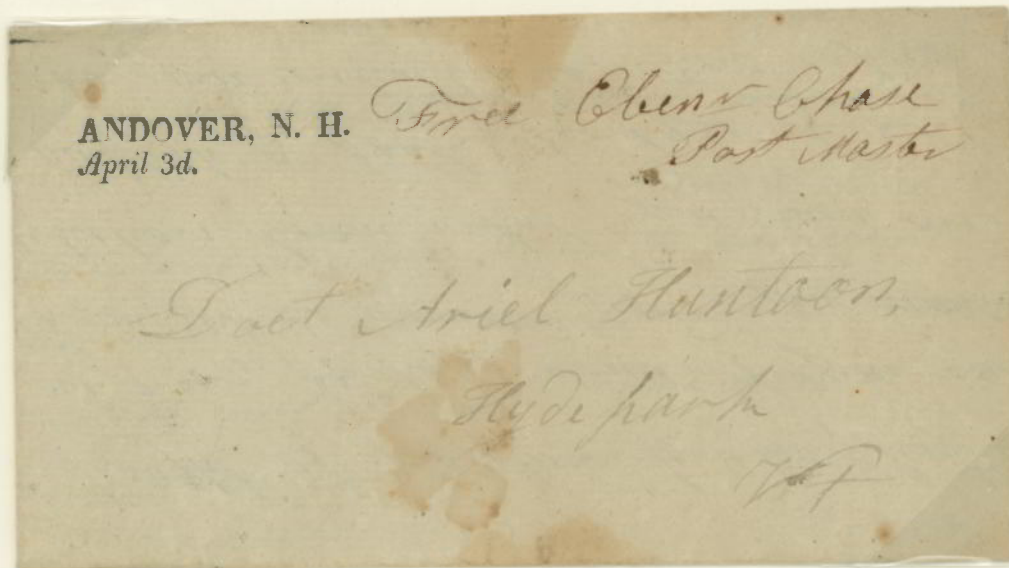 ANDOVER, N. H.
April 3d.
Free Ebenr Chase
Post Master
Doct Ariel Huntoon,
Hyde park
VT